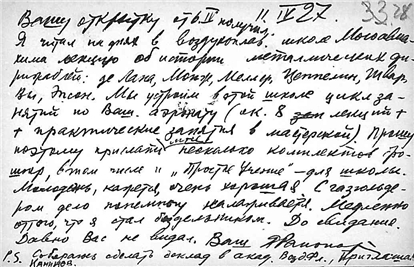 33 28
Вашу открытку от 6.IV получил. 11.IV 27.
Я читал на днях в воздухоплав. школе Мосавиа-
хима лекцию об истории металлических ди-
рижаблей: де Лана, Монж, Цеппелин, Швар-
цы, Эпсон. Мы устроим в этой школе цикл за-
нятий по Ваш. аэронату (ок. 8 лекций +
+ практические занятия в мастерской). Прошу
поэтому прислать мне несколько комплектов бро-
шюр, в том числе и „Простое учение" – для школы.
Молодежь, кажется, очень хорошая. С газгольде-
ром дело понемногу налаживается. Медленно
оттого, что я стал бездельником. До свидания.
Давно Вас не видал. Ваш
P.S. Собираюсь сделать доклад в акад. Возд. Фл.,